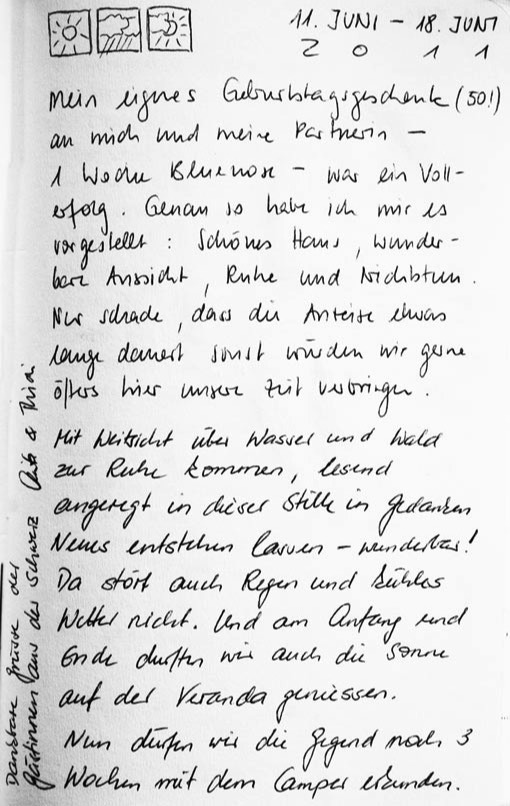 11. JUNI – 18. JUNI
2 0 1 1
Mein eignes Geburtstagsgeschenk (50!)
an mich und meine Partnerin –
1 Woche Bluenose – war ein Voll-
erfolg. Genau so habe ich mir es
vorgestellt: Schönes Haus, wunder-
bare Aussicht, Ruhe und Nichtstun.
Nur schade, dass die Anreise etwas
lange dauert sonst würden wir gerne
öfters hier unsere Zeit verbringen.
Mit Weitsicht über Wasser und Wald
zur Ruhe kommen, lesend
angeregt in dieser Stille in Gedanken
Neues entstehen lassen – wunderbar!
Da stört auch Regen und kühles
Wetter nicht. Und am Anfang und
Ende durften wir auch die Sonne
auf der Veranda geniessen.
Nun dürfen wir die Gegend noch 3
Wochen mit dem Camper erkunden.
Dankbare Grüsse der
Gästinnen aus der Schweiz Rita &